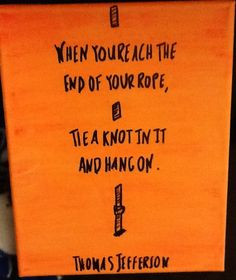 WHEN YOU REACH THE
END OF YOUR ROPE,
TIE A KNOT IN IT
AND HANG ON.
THOMAS JEFFERSON